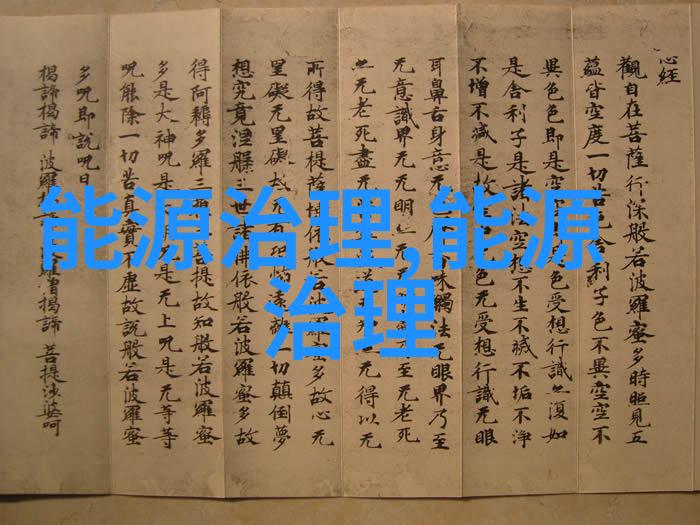 心经
觀自在菩薩行深般若波羅蜜多時照見五
蘊皆空度一切苦厄舍利子色不異空空不
異色色即是空色受想行識亦復如
是舍利子是諸法空想不生不滅不垢不淨
不增不減是故空色无受想行識无眼
耳鼻舌身意无味觸法无眼界乃至
无意識界无无明乃至无老死
亦无老死盡无得以无
所得故菩提薩埵依般若波羅蜜多故心无
罣礙无罣礙故无有恐怖遠離一切顛倒夢
想究竟涅槃三世諸佛依般若波羅蜜多故
得阿耨多羅三菩提故知般若波羅蜜
多是大神呪是明呪是无上呪是无等等
呪能除一切苦真實不虛故說般若波羅蜜
多呪即說呪曰
揭諦揭諦 波羅揭 羅僧揭諦 菩提娑婆呵
能源治理,能源
治理